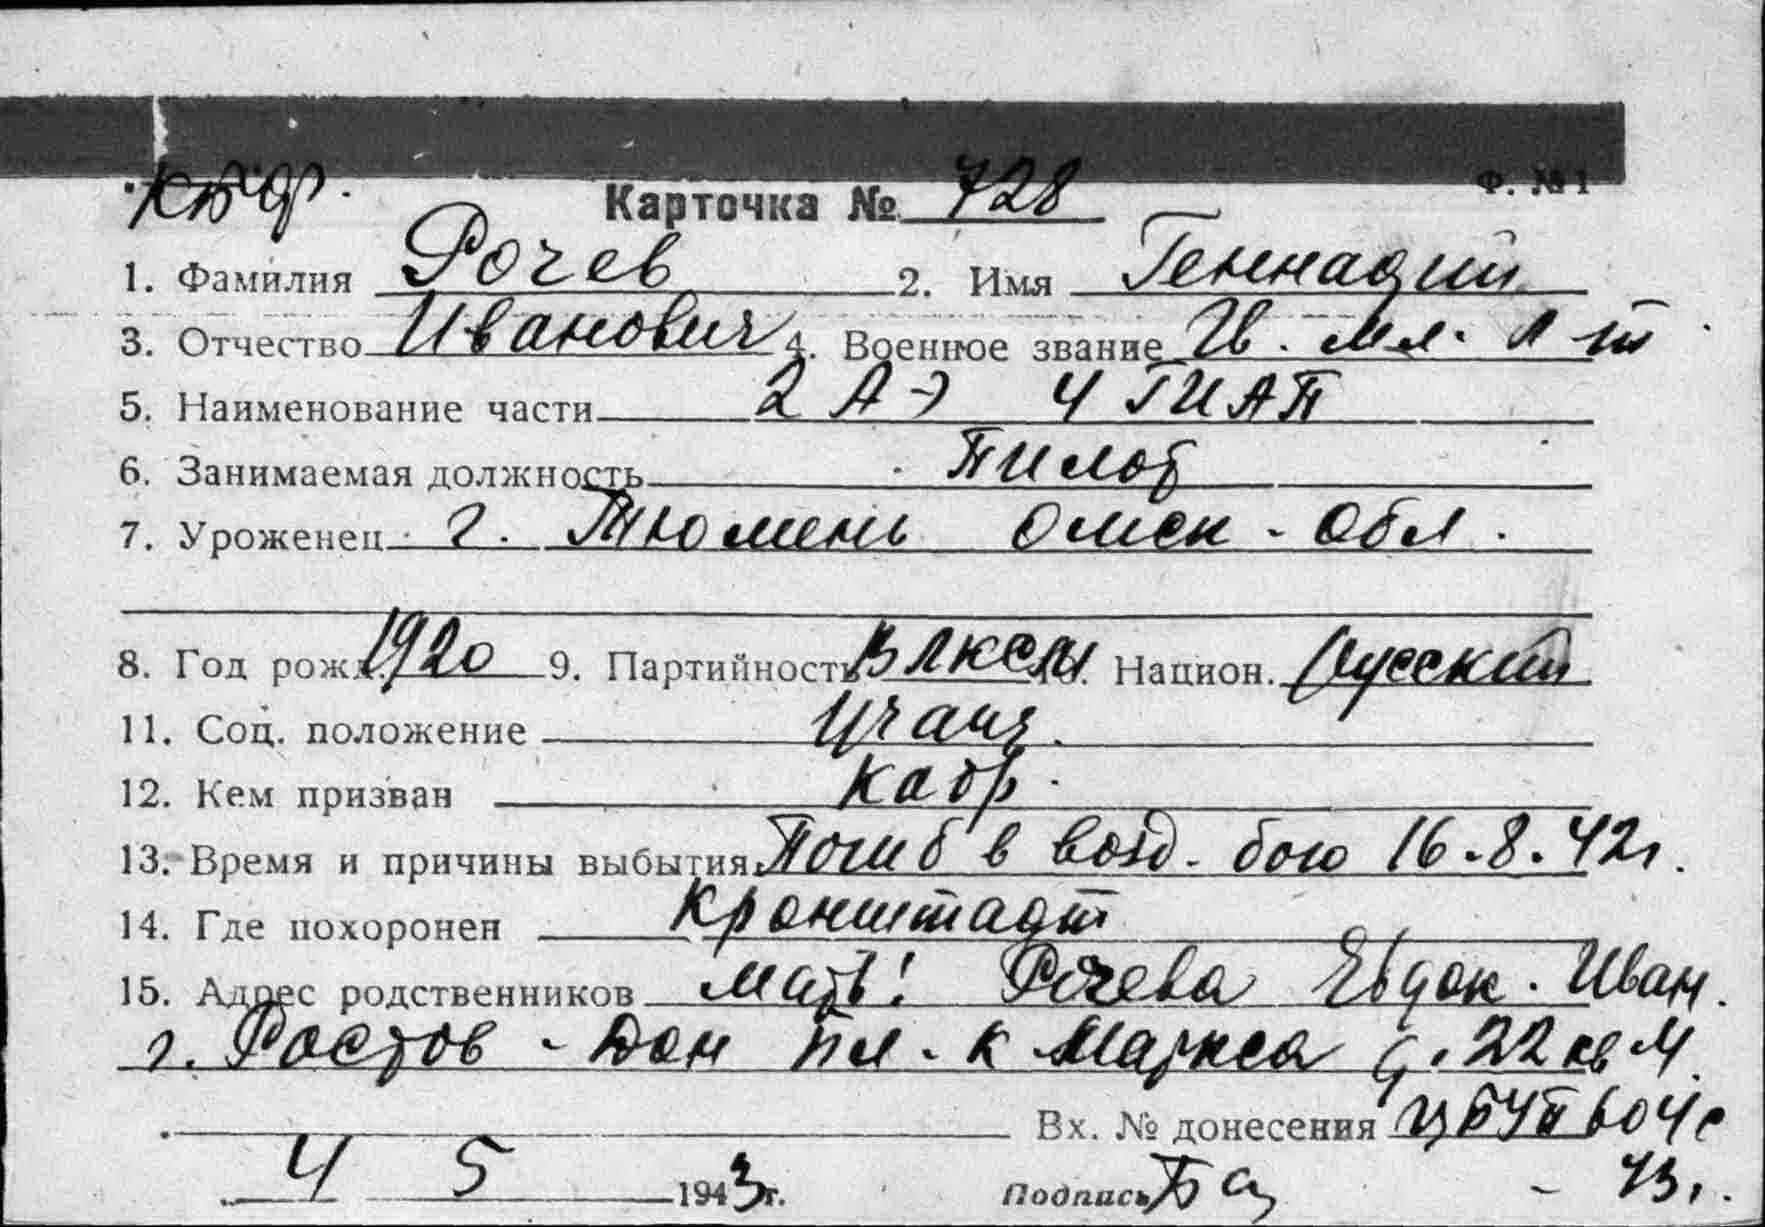 КБФ.
Ф. №1
Карточка № 728
1. Фамилия Рочев 2. Имя Геннадий
3. Отчество Иванович 4. Военное звание Гв. мл. л-т
5. Наименование части 2 АЭ 4 ГИАП
6. Занимаемая должность Пилот
7. Уроженец г. Тюмень Омск. Обл.
8. Год рожд. 1920 9. Партийность ВЛКСМ 10. Национ. Русский
11. Соц. положение Учащ.
12. Кем призван Кадр.
13. Время и причины выбытия Погиб в возд. бою 16.8.42г.
14. Где похоронен Кронштадт
15. Адрес родственников мать: Рочева Евдок. Иван.
г. Ростов - Дон пл. К Маркса д. 22 кв 4
Вх. № донесения 604с
4 5 1943г. Подпись - 43г.